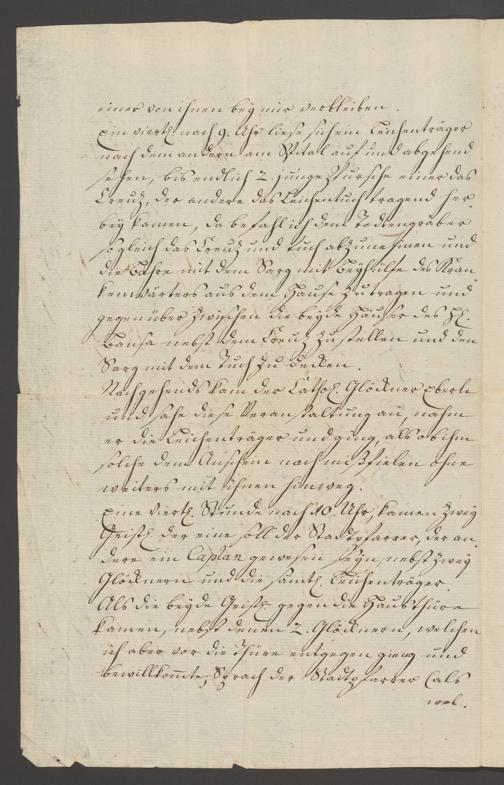 einer von ihnen bey mir verbleiben.
Ein viertl. nach 9. Uhr liese sich ein Leichenträger
nach dem andern am Spital auf und abgehend
sehen, bis endlich 2. junge Pursche einer das
Creutz, der andere das Leichentuch tragend her¬
bey kamen, da befahl ich dem Todtengräber
sogleich das Creutz und Tuch abzunehmen und
die Bahre mit dem Sarg mit Beyhülfe des Kran¬
kenwärters aus dem Hause zu tragen und
gegen über zwischen die beyde Häuser des H.
Bansa nebst dem Creutz zu stellen und den
Sarg mit dem Tuch zu decken.
Nachgehends kam der Cathol. Glöckner Eberle
und sahe diese Veranstaltung an, nahm
er die Leichenträger und ging, als ob ihm
solche dem Anschein nach mißfielen ohne
weiters mit ihnen hinweg.
Eine viertl. Stunde nach 10 Uhr, kamen zwey
Geistl. der eine soll der Stadtpfarrer, der an¬
dere ein Caplan gewesen seyn, nebst zwey
Glöcknern und die sämtl. Leichenträger.
Als die beyde Geistl. gegen die Hausthüre
kamen, nebst denen 2. Glöcknern, welchen
ich aber vor die Thüre entgegen gieng und
bewillkommte, Sprach der Stadtpfarrer (als
wel.